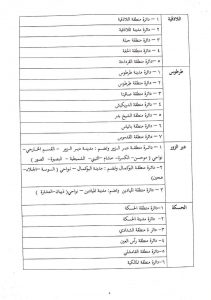 اللاذقية
١ – دائرة مدينة اللاذقية
٢ – دائرة منطقة اللاذقية
٣ – دائرة منطقة جبلة
٤ – دائرة منطقة الحفة
٥ – دائرة منطقة القرداحة
طرطوس
١ – دائرة مدينة طرطوس
٢ – دائرة منطقة طرطوس
٣ – دائرة منطقة صافيتا
٤ – دائرة منطقة الدريكيش
٥ – دائرة منطقة الشيخ بدر
٦ – دائرة منطقة بانياس
٧ – دائرة منطقة القدموس
دير الزور
١ – دائرة منطقة دير الزور وتضم: مدينة دير الزور – القسم الخارجي –
نواحي (موحسن – الكسرة – خشام – التبني – البصيرة – الصور)
٢ – دائرة منطقة البوكمال وتضم: مدينة البوكمال – نواحي (السوسة – الجلاء –
هجين)
٣ – دائرة منطقة الميادين وتضم: مدينة الميادين – نواحي (ذيبان – العشارة)
الحسكة
١ – دائرة مدينة الحسكة
٢ – دائرة منطقة الحسكة
٣ – دائرة منطقة الشدادي
٤ – دائرة منطقة رأس العين
٥ – دائرة منطقة القامشلي
٦ – دائرة منطقة المالكية